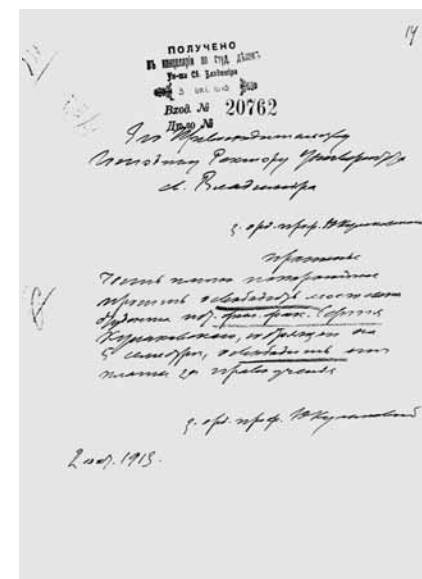 14
ПОЛУЧЕНО
въ канцелярiи по студ. дѣламъ
Ун-та Св. Владимiра
3 ОКТ. 1913
Вход. № 20762
Дѣло №
Его Превосходительству
Господину Ректору Университета
св. Владимира
з. орд. проф. Ю Кулаковского
прошение
Честь имею покорнейше
просить освободить моего сына
студента ист. фил. фак. Сергея
Кулаковского,
5 семестра, освободить от
платы за право учения
з. орд. проф. Ю Кулаковский
2 1913.